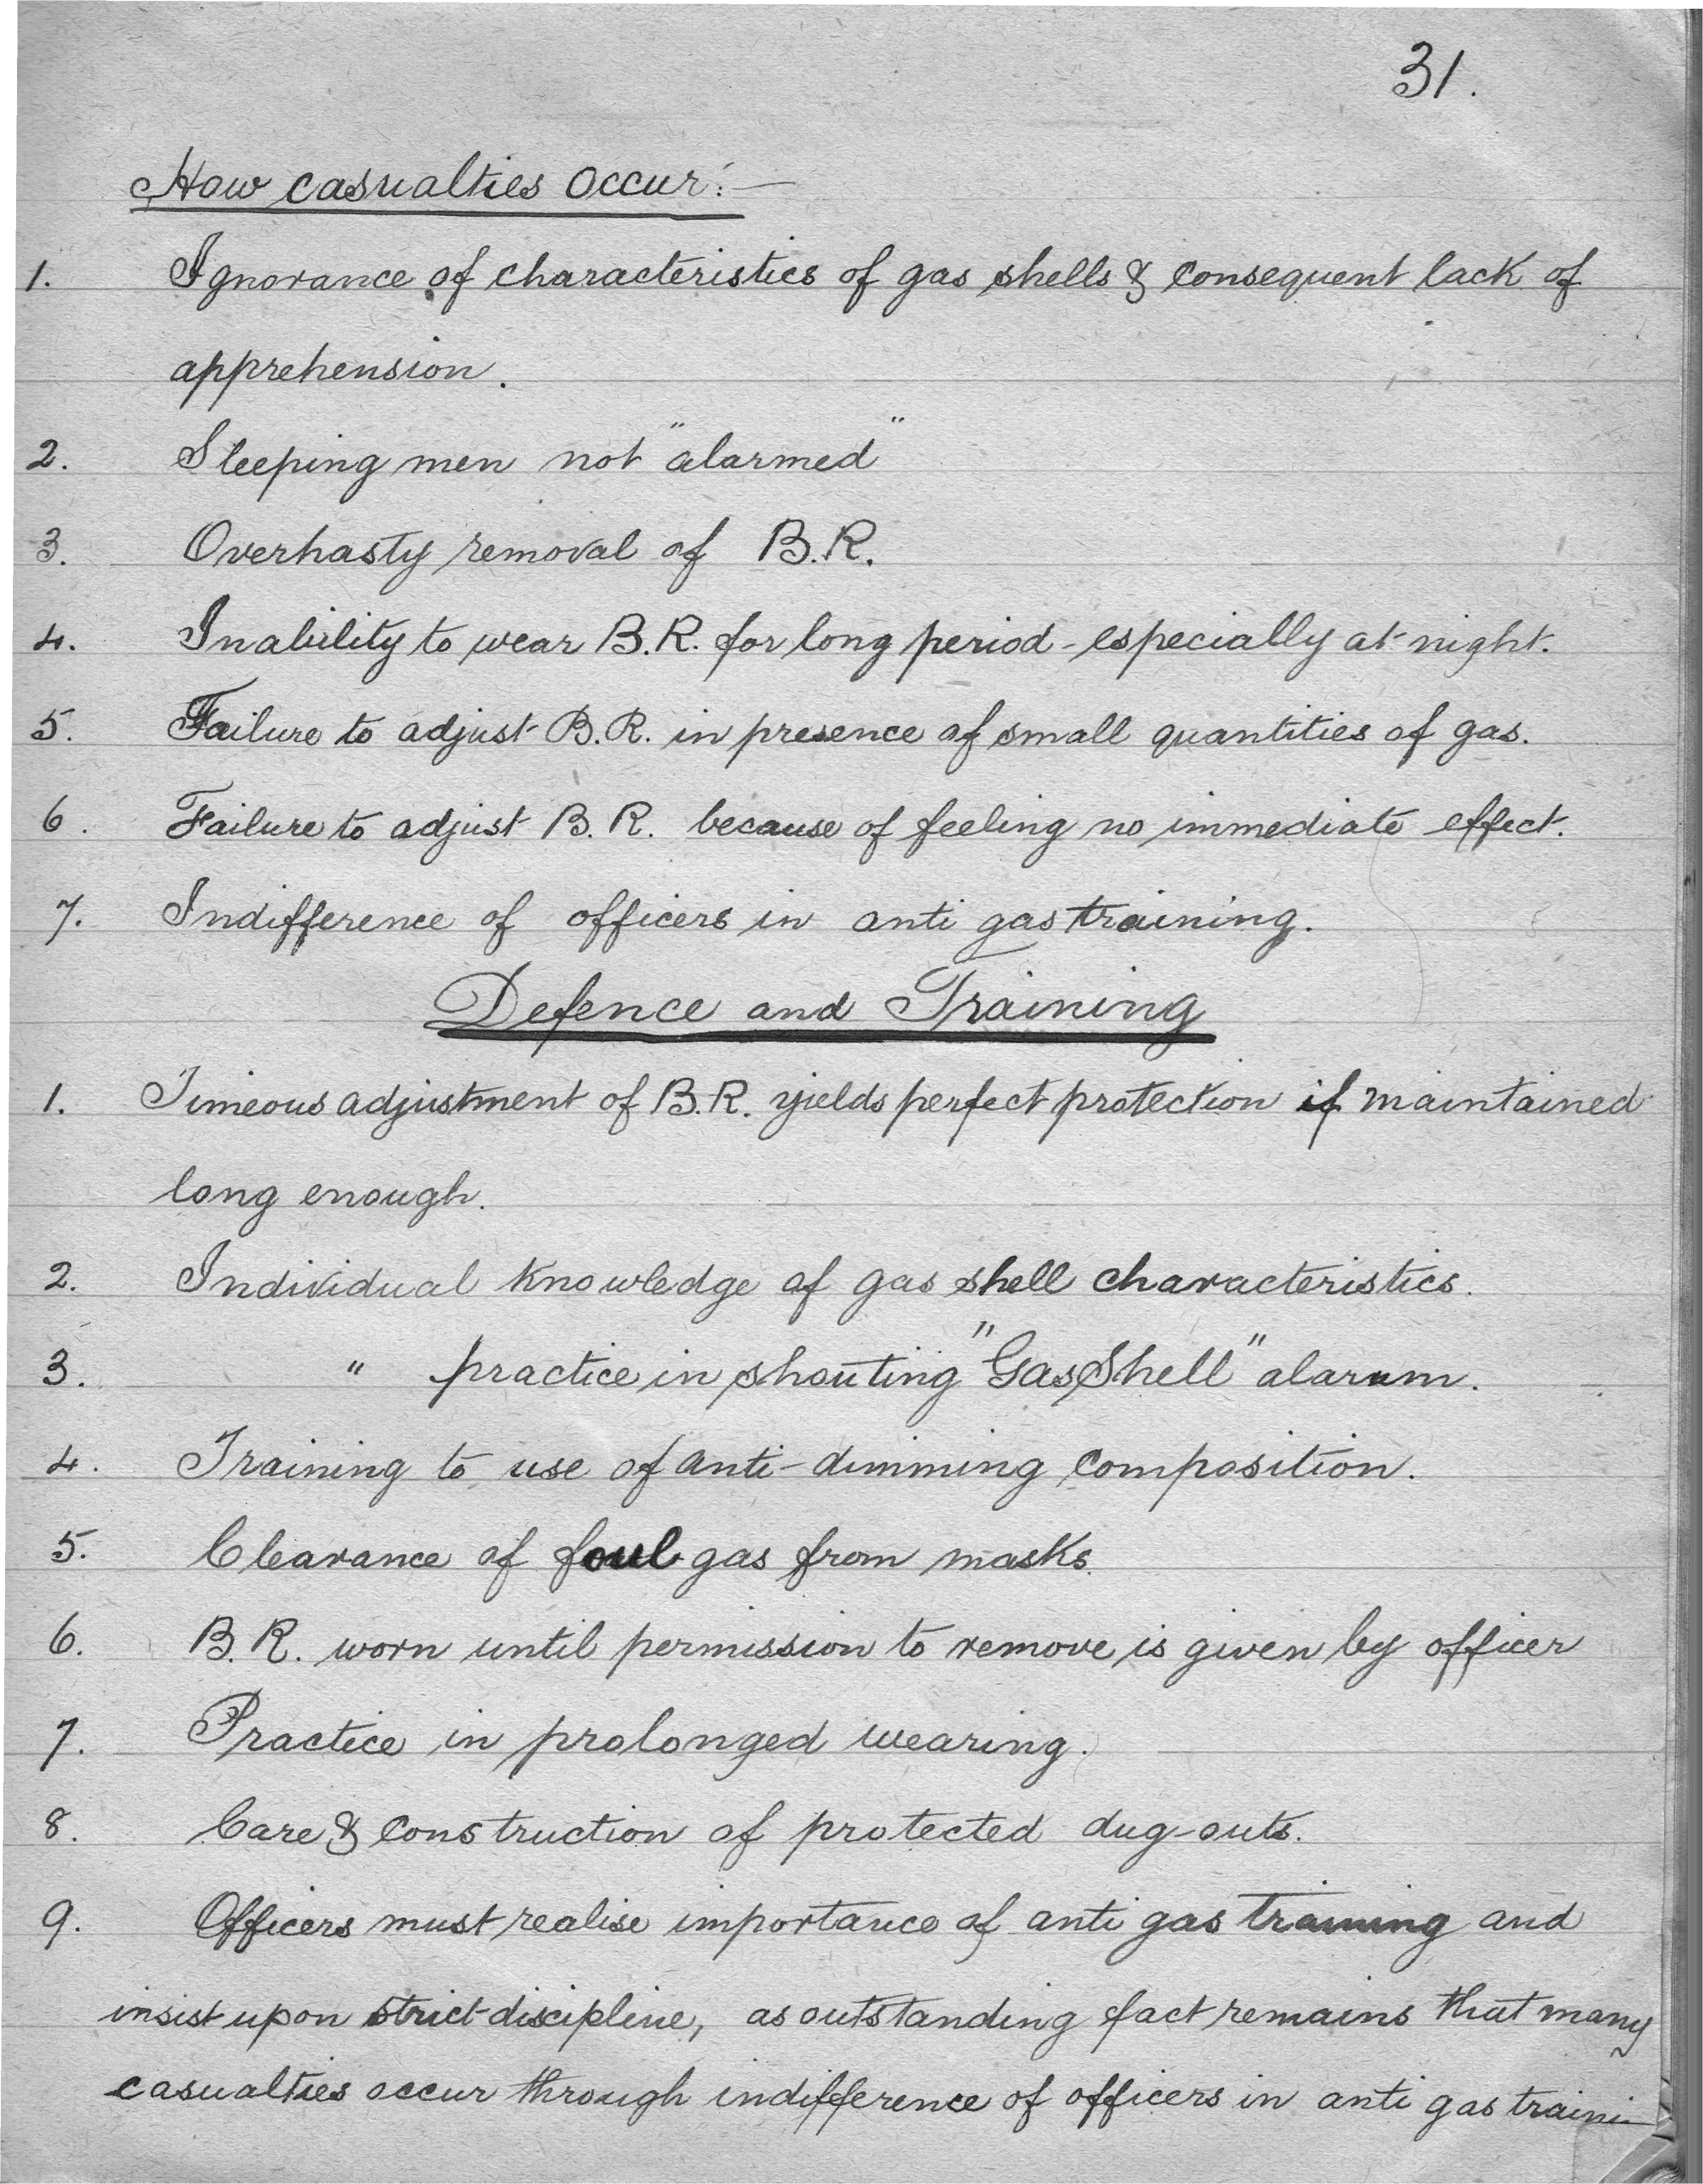 31.
How casualties occur:—
1. Ignorance of characteristics of gas shells & consequent lack of
apprehension.
2. Sleeping men not "alarmed"
3. Overhasty removal of B.R.
4. Inability to wear B.R. for long period - especially at night.
5. Failure to adjust B.R. in presence of small quantities of gas.
6. Failure to adjust B.R. because of feeling no immediate effect.
7. Indifference of officers in anti gas training.
Defence and Training
1. Timeous adjustment of B.R. yields perfect protection if maintained
long enough.
2. Individual knowledge of gas shell characteristics.
3. " practice in shouting "Gas Shell" alarum.
4. Training to use of anti-dimming composition.
5. Clearance of foul gas from masks.
6. B.R. worn until permission to remove is given by officer
7. Practice in prolonged wearing.
8. Care & construction of protected dug-outs.
9. Officers must realise importance of anti gas training and
insist upon strict discipline, as outstanding fact remains that many
casualties occur through indifference of officers in anti gas traini